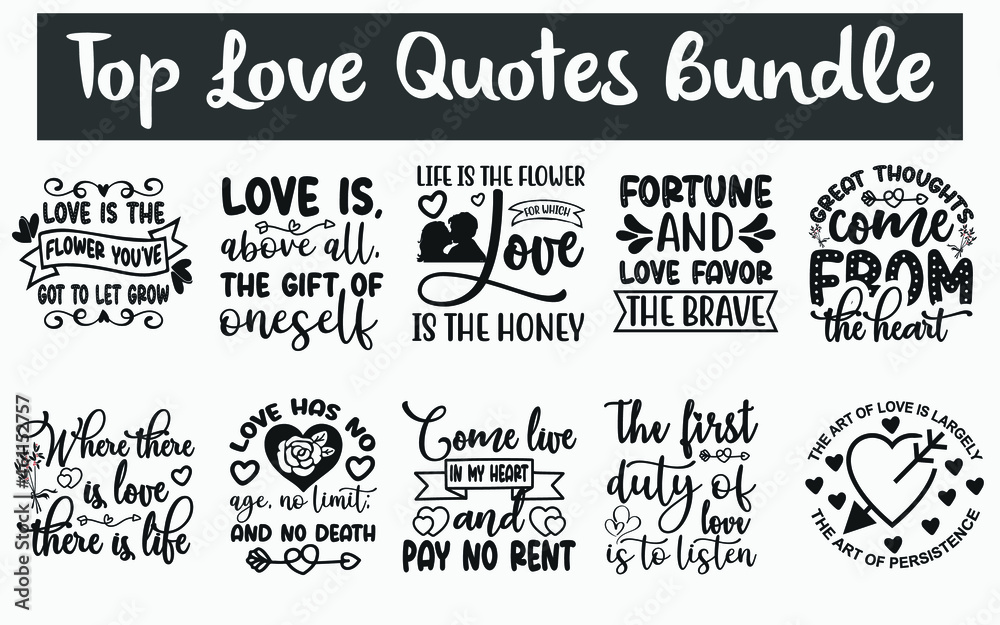 Top Love Quotes Bundle
LOVE IS THE
FLOWER YOU'VE
GOT TO LET GROW
LOVE IS,
above all,
THE GIFT OF
oneself
LIFE IS THE FLOWER
FOR WHICH
Love
IS THE HONEY
FORTUNE
AND
LOVE FAVOR
THE BRAVE
GREAT THOUGHTS
come
FROM
the heart
Where there
is love
there is life
LOVE HAS NO
age, no limit;
AND NO DEATH
Come live
IN MY HEART
and
PAY NO RENT
The first
duty of
love
is to listen
THE ART OF LOVE IS LARGELY
THE ART OF PERSISTENCE
Adobe Stock | #461152757